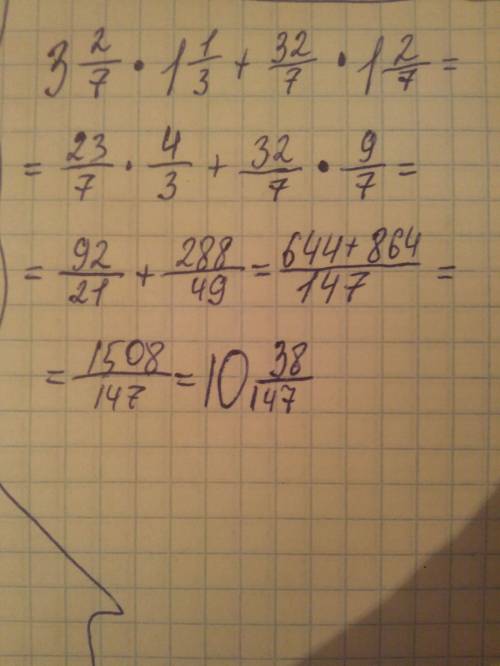 3 2/7 • 1 1/3 + 32/7 • 1 2/7 =
= 23/7 • 4/3 + 32/7 • 9/7 =
= 92/21 + 288/49 = 644+864/147 =
= 1508/147 = 10 38/147